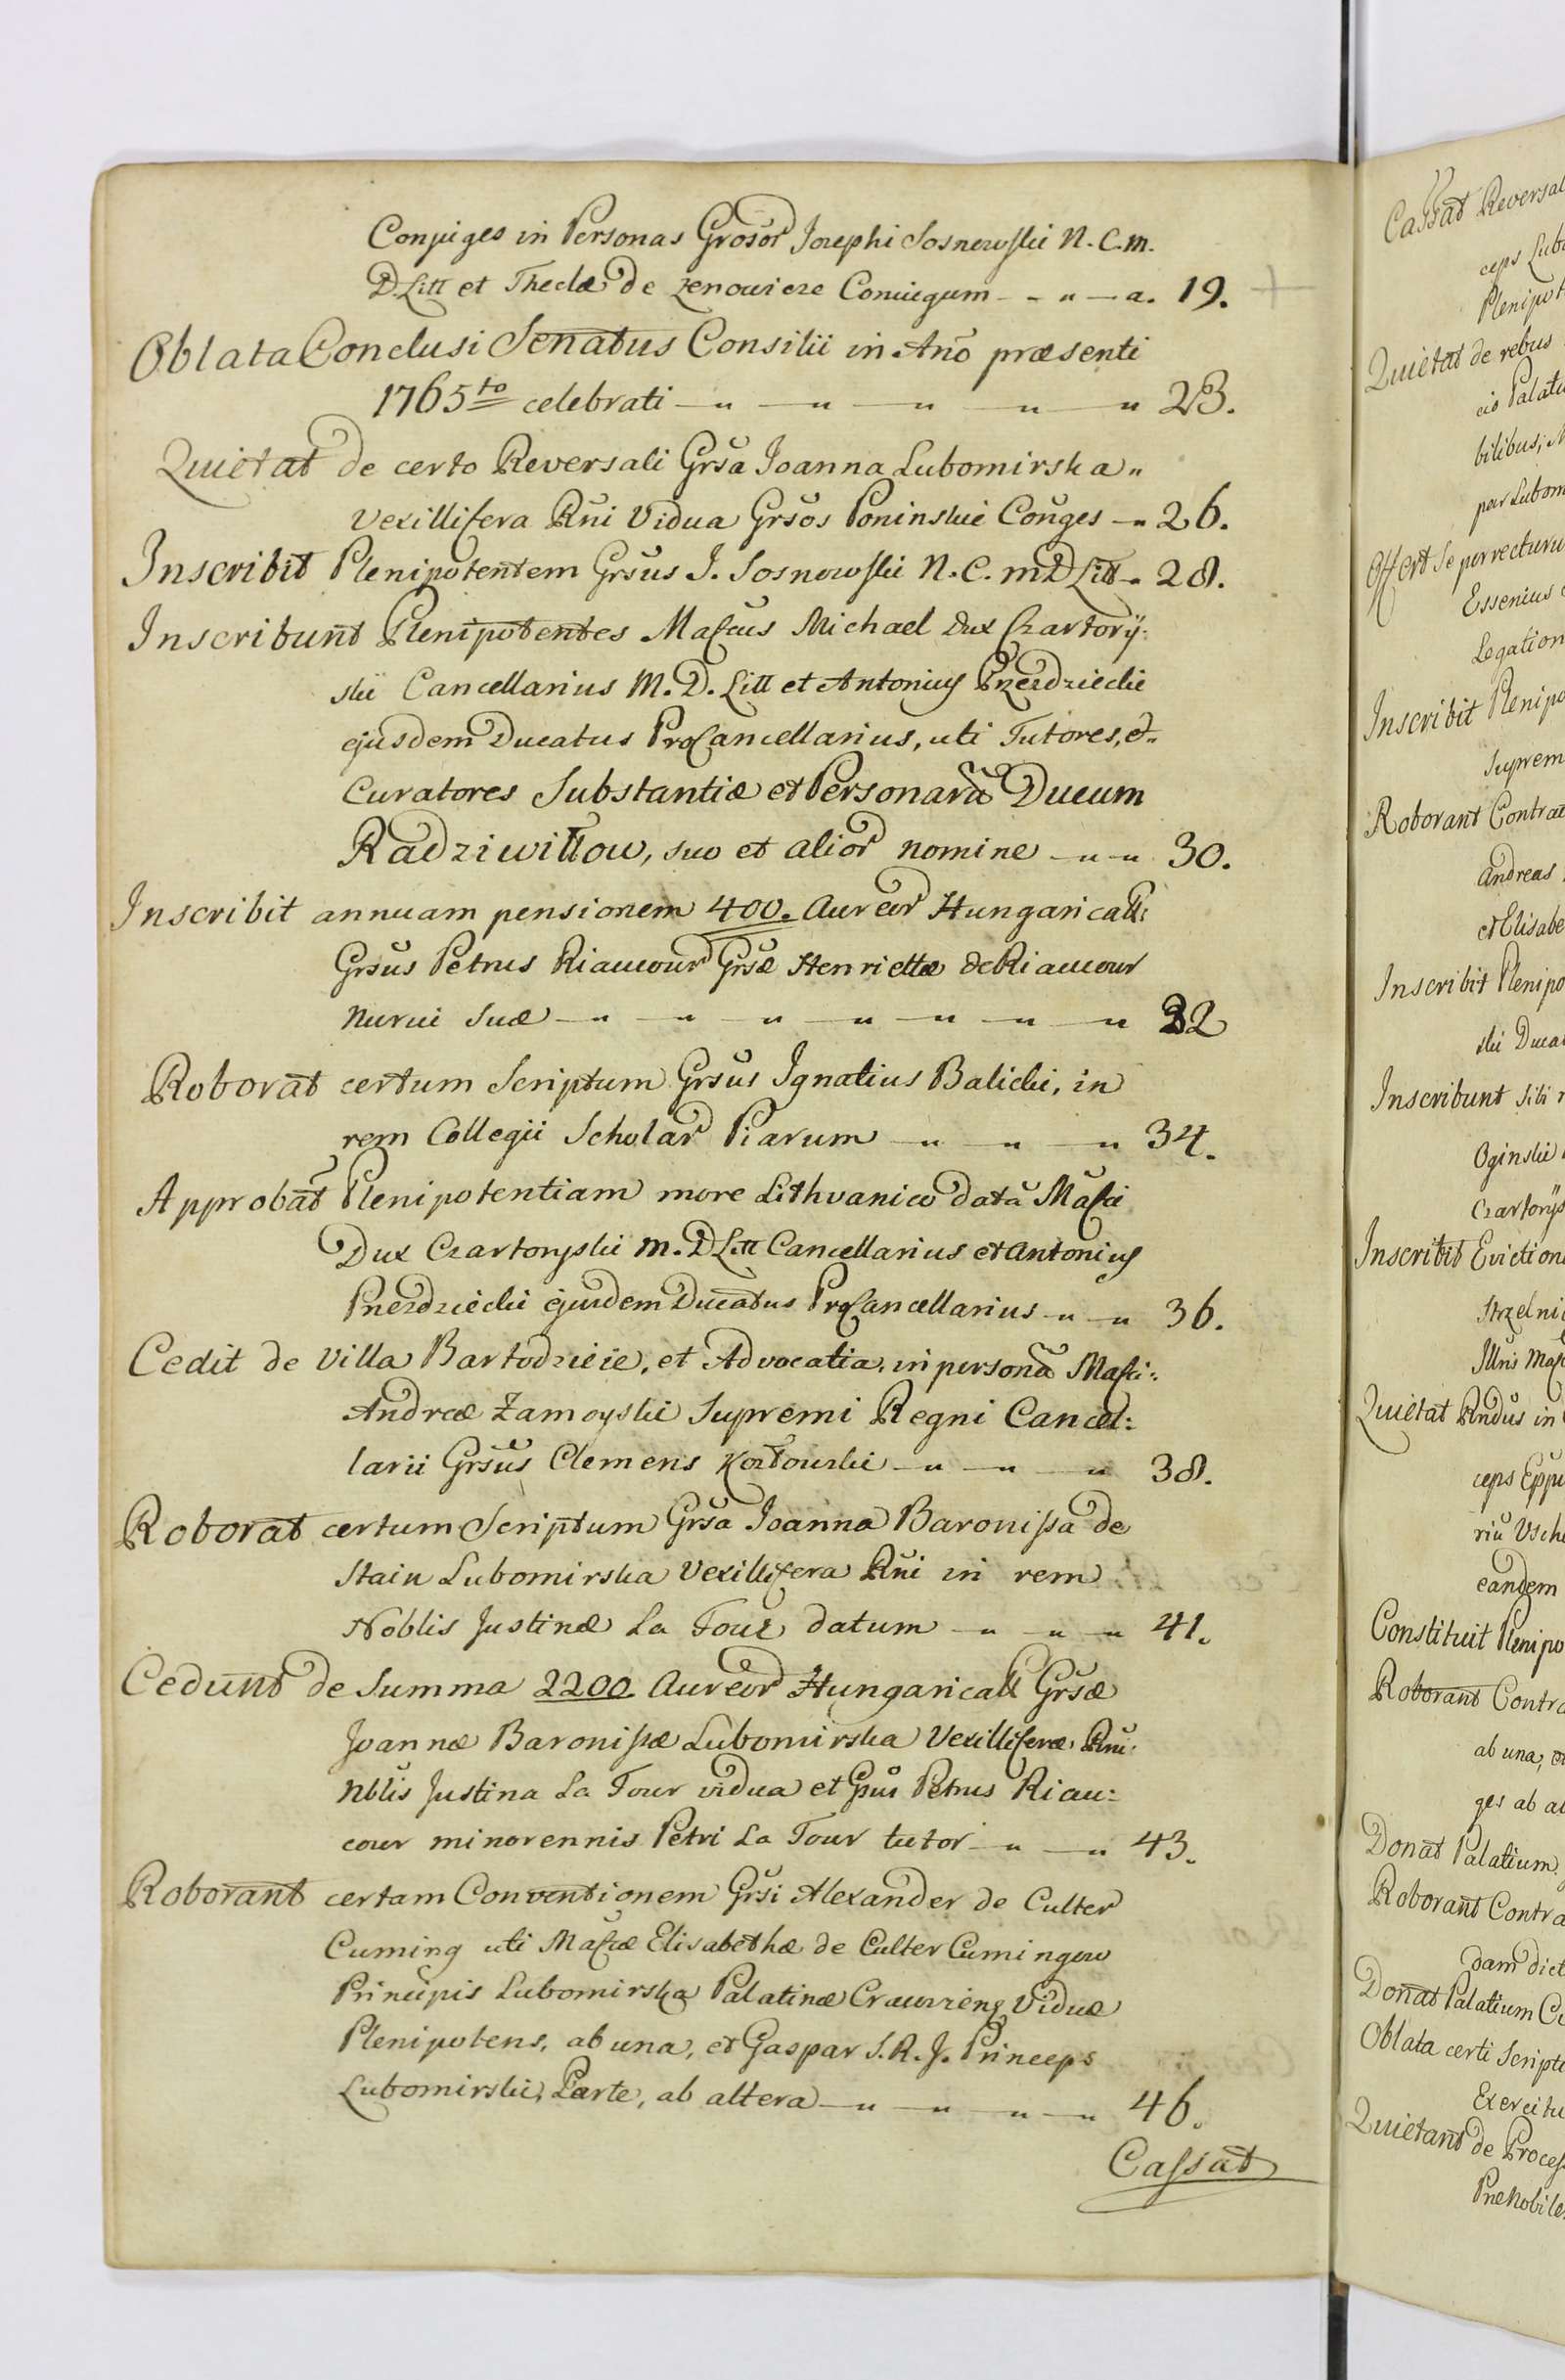 Conjuges in Personas Grosor Josephi Sosnowskii N. C. M.
D. Litt et Theclæ de Zenowicze Coniugum - - " - a. 19.
Oblata Conclusi Senatus Consilii in Año præsenti
1765to celebrati - " - " - " - " - " 23.
Quietat de certo Reversali Grsa Joanna Lubomirska "
Vexillifera Rni Vidua Grsos Poninskie Conges - " 26.
Inscribit Plenipotentem Grsus J. Sosnowski N. C. m D Litt - 28.
Inscribunt Plenipotentes Mafcus Michael Dux Czartory:
skii Cancellarius M. D. Litt et Antonius Przezdziecki
ejusdem Ducatus ProCancellarius, uti Tutores, et
Curatores Substantiæ et Personarū Ducum
Radziwiłłow, suo et alior nomine - " - " 30.
Inscribit annuam pensionem 400. Aureor Hungaricall:
Grsus Petrus Riaucour Grsæ Henriettæ de Riaucour
Nurui Suæ - " - " - " - " - " - " - " 32
Roborat certum Scriptum Grsus Ignatius Balicki, in
rem Collegii Scholar Piarum - " - " - " 34.
Approbat Plenipotentiam more Lithvanico datā Mafci
Dux Czartoryski M. D Litt Cancellarius et Antonius
Przezdziecki ejusdem Ducatus ProCancellarius - " - " 36.
Cedit de Villa Bartodzieie, et Advocatia, in personā Mafci:
Andreæ Zamoyski Supremi Regni Cancel:
larii Grsus Clemens Kozłowski - " - " - " 38.
Roborat certum Scriptum Grsa Joanna Baronissa de
Stain Lubomirska Vexillifera Rni in rem
Noblis Justinæ La Tour datum - " - " - " 41.
Cedunt de Summa 2200 Aureor Hungaricall Grsæ
Joannæ Baronissæ Lubomirska Vexilliferæ Rni:
Nblis Justina La Tour vidua et Gsus Petrus Riau:
cour minorennis Petri La Tour tutor - " - " 43.
Roborant certam Conventionem Grsi Alexander de Culter
Cuming uti Mafcæ Elisabethæ de Culter Cumingow
Principis Lubomirska Palatinæ Cracovien Viduæ
Plenipotens, ab una, et Gaspar S. R. J. Princeps
Lubomirski, Parte, ab altera - " - " - " - " 46.
Cassat
Cassat Reversal
ceps Lubo
Plenipot
Quietat de rebus
cis Palati
bilibus,
par Lubom
Offert se porrecturu
Essenius
Legation
Inscribit Plenipo
Suprem
Roborant Contrac
Andreas
et Elisabe
Inscribit Plenipo
skii Ducat
Inscribunt Sibi
Oginskii
Czartorys
Inscribit Eviction
Strzelni
Illris Maf
Quietat Rndus in
ceps Eppu
riū Vsch
eandem
Constituit Plenipo
Roborant Contra
ab una,
ges ab al
Donat Palatium
Roborant Contra
dam dict
Donat Palatium Cu
Oblata certi Scripti
Exercitu
Quietant de Process
Præ Nobiles